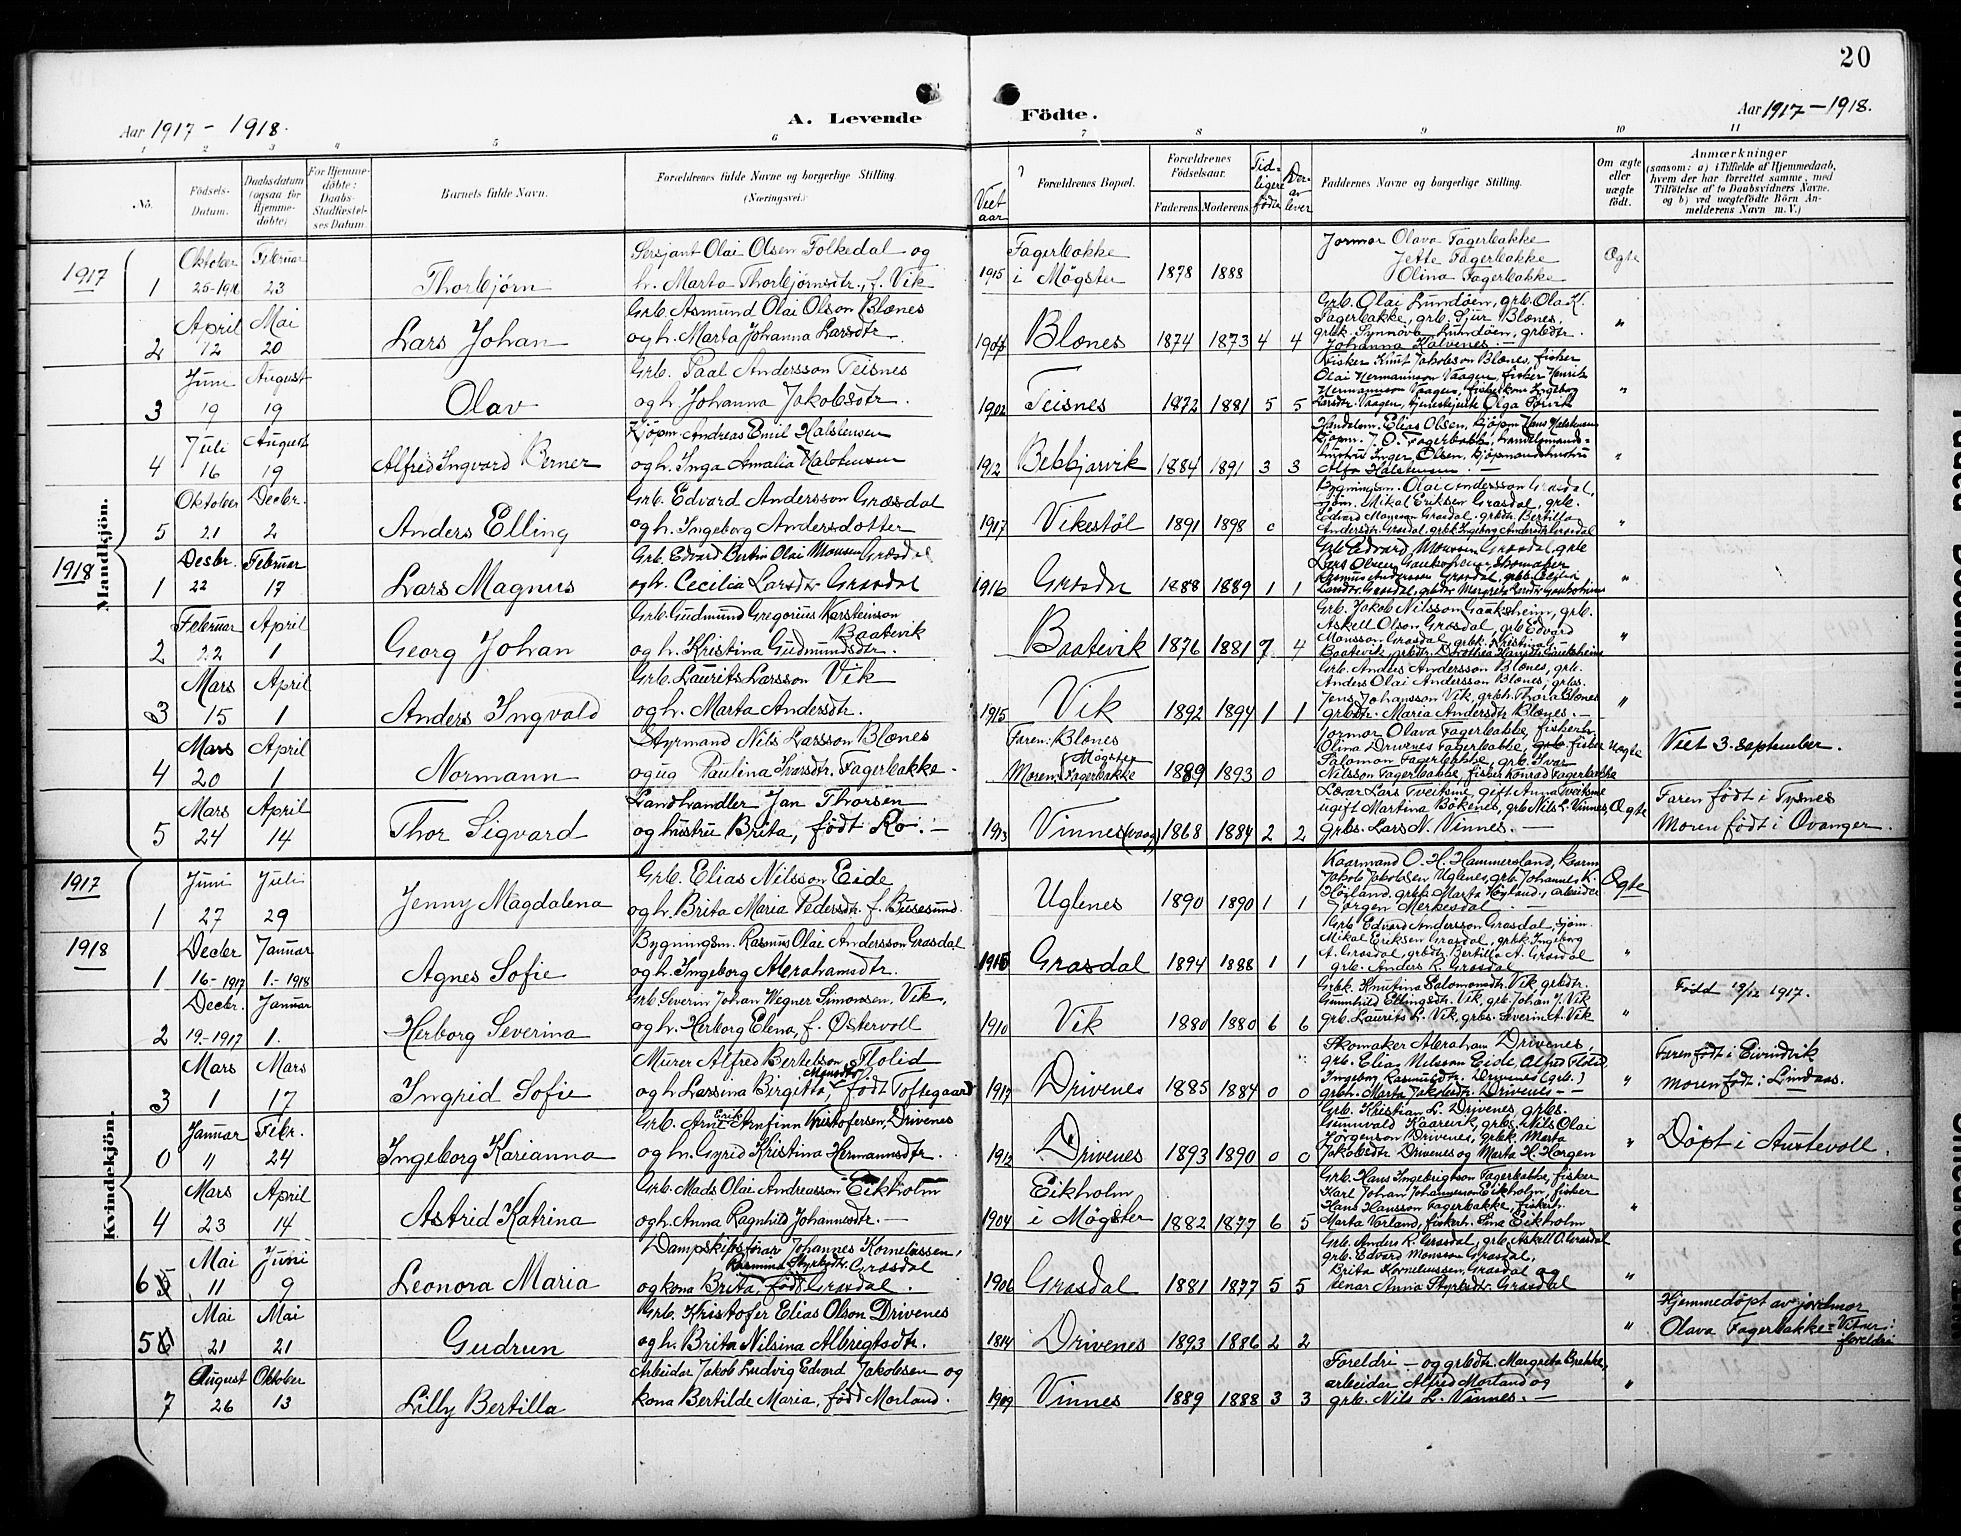 20
Aar 1917 - 1918.
A. Levende
Födte.
Aar 1917-1918.
1 2 3 4 5 6 7 8 9 10 11
No.
Födsels-Datum.
Daabsdatum (ogsaa for Hjemme-döbte)
For Hjemme-döbte: Daabs-Stadfæstel-ses Datum
Barnets fulde Navn.
Forældrenes fulde Navne og borgerlige Stilling (Næringsvei.)
Viet aar
Forældrenes Bopæl.
Forældrenes Födselsaar.
Faderens. Moderens.
Tid-ligere födte
Der-av lever
Faddernes Navne og borgerlige Stilling.
Om ægte eller uægte födt.
Anmærkninger
(saasom: a) i Tilfælde af Hjemmedaab,
hvem der har forrettet samme, med
Tilföielse af to Daabsvidners Navne.
og b) ved uægtefödte Börn An-
melderens Navn m. V.)
Mandkjön.
1917
Oktober Februar Sersjant Olai Olsen Folkedal og Fagerbakke Jormor Olava Fagerbakke
1 25-1916 23 Thorbjørn h. Marta Thorbjørnsdtr., f. Vik 1915 i Møgster 1878 1888 Jette Fagerbakke Ogte
Olina Fagerbakke
April Mai Grb. Asmund Olai Olson Blænes Grb. Olai Lundøen, grb. Ola K.
2 12 20 Lars Johan og h. Marta Johanna Larsdtr. Blænes 1874 1873 4 4 Fagerbakke, grb. Sjur Blænes, "
grbk. Synnøva Lundøen, grbdtr.
Johanna Kalvenes. —
Juni August Grb. Paal Andersson Teisnes Fisker Knut Jakobson Blænes, fisker
3 19 19 Olav og h. Johanna Jakobsdtr. 1902 Teisnes 1872 1881 5 5 Olai Hermannson Vaagen, fisker Henrik "
Hermannson Vaagen, fiskerkone Ingeborg
Larsdtr. Vaagen, tjenestejente Olga Torvik
Juli August Kjøpm. Andreas Emil Halstensen Handelsm. Elias Olsen, kjøpm Hans Halstensen
4 16 19 Alfred Ingvard Berner og h. Inga Amalia Halstensen 1912 Bekkjarvik 1884 1891 3 3 kjøpm. J. O. Fagerbakk, handelsmands- "
hustru Inger Olsen, kjøpmandshustru
Alfa Halstensen. —
Oktober Decbr. Grb. Edvard Andersson Græsdal Bygningsm. Olai Andersson Grasdal,
5 21 2 Anders Elling og h. Ingeborg Andersdotter 1917 Vikestøl 1891 1898 0 Mikal Eriksen Grasdal, grb. "
Edvard Monsson Grasdal, grbdtr. Bertilla
Andersdtr. Grasdal, grbk Ingeborg Andersdtr Grasdal
1918
Desbr. Februar Grb. Edvard Bertin Olai Monsen Græsdal Grb Edvard Monssen Grasdal, grb
1 22 17 Lars Magnus og h. Cecilia Larsdtr Grasdal 1916 Grasdal 1888 1889 1 1 Lars Olsen Gauksheim, skomaker "
Rasmus Andersson Grasdal, grbk Cecilia
Larsdtr Grasdal, grbdtr Margreta Larsdtr Gauksheim
Februar April Grb. Gudmund Gregorius Karsteinson Grb. Jakob Nilsson Gauksheim, grb.
2 22 1 Georg Johan Baatevik Baatevik 1876 1881 7 4 Askell Olson Grasdal, grb Edvard "
og h. Kristina Gudmundsdtr. Monsson Grasdal, grbk. Kristina G.
Baatevik, grbdtr. Dorothea Hansdtr Gauksheim
Mars April Grb. Laurits Larsson Vik Grb. Anders Andersson Blænes, grb.
3 15 1 Anders Ingvald og h. Marta Andersdtr. 1915 Vik 1892 1894 1 1 Anders Olai Andersson Blænes, grbs. "
Jens Johansson Vik, grbh. Thora Blænes
grbdtr. Maria Andersdtr Blænes. —
Mars April Styrmand Nils Larsson Blænes Faren: Blænes Jormor Olava Fagerbakke, fiskerh.
4 20 1 Normann og ug Paulina Ivarsdtr. Fagerbakke. Moren: Fagerbakke Møgster 1889 1893 0 Olina Drivenes Fagerbakke, fisker Uægte Viet 3. september.
Salomon Fagerbakke, grb. Ivar
Nilsson Fagerbakke, fisker Konrad Fagerbakke
Mars April Landhandler Jan Thorsen Lærar Lars Tveitane, gift Anna Tveitane Faren født i Tysnes
5 24 14 Thor Sigvard og hustru Brita, født Ro. — 1913 Vinnes (vaag) 1868 1884 2 2 ugift Martina Bökenes, grb Nils L. Vinnes, Ogte Moren født i Ovanger.
grbs. Lars N. Vinnes. —
Kvindekjön.
1917
Juni Juli Grb. Elias Nilsson Eide Kaarmand O. H. Hammersland, kaarm
1 27 29 Jenny Magdalena og h. Brita Maria Pedersdtr. f. Busesund. Uglenes 1890 1890 1 1 Jakob Jakobsen Uglenes, grb. Johannes K. Ogte
Høyland, grbk. Marta Høyland, arbeider
Jørgen Merkesdal
1918
Decbr Januar Bygningsm. Rasmus Olai Andersson Grasdal Grb Edvard Andersson Grasdal,
1 16-1917 1.-1918 Agnes Sofie og h. Ingeborg Abrahamsdtr. Grasdal 1894 1888 1 1 Mikal Eriksen Grasdal, grbk Ingeborg "
A. Grasdal, grbdtr. Bertilla A. Grasdal
grb. Anders R. Grasdal
Decbr. Januar Grb Severin Johan Wegner Simonsen, Vik, Grbk. Knutina Salomonsdtr. Vik, grbdtr. Fødd 19/12 1917.
2 19-1917 1. Herborg Severina og h. Herborg Elena, f. Østervoll 1910 Vik 1880 1880 6 6 Gunnhild Ellingsdtr. Vik, grb. Johan J. Vik "
grb. Laurits L. Vik, grbs. Severin A. Vik
Mars Mars Murer Alfred Bertelson Flolid Skomaker Abraham Drivenes, Faren født i Eivindvik
3 1 17 Ingrid Sofie og h. Larsina Birgitta Monsdtr, født Toftegaard 1917 Drivenes 1885 1884 0 0 grb. Elias Nilsson Eide, Alfred Flolid, " Moren født i Lindaas.
Ingeborg Rasmusdtr. Drivenes (grb.)
grbh. Marta Jakobsdtr. Drivenes —
Januar Febr. Grb. Arne Erik Arnfinn Kristofersen, Drivenes Grb. Kristian L. Drivenes, grbs.
0 11 24 Ingeborg Karianna og h. Gyrid Kristina Hermannsdtr. 1912 Drivenes 1893 1890 0 0 Gunnvald Kaarevik, grbs. Nils Olai " Døpt i Austevoll.
Jørgenson Drivenes, grbk. Marta
Jakobsdtr Drivenes og Marta H. Horgen
Mars April Grb. Mads Olai Andreasson Eikholm Eikholm Grb. Hans Ingebrigtson Fagerbakke, fisker
4 23 14 Astrid Katrina og h. Anna Ragnhild Johannesdtr. — 1904 i Møgster 1882 1877 6 5 Karl Johan Johannesson Eikholm, fisker "
Hans Hansson Fagerbakke, fiskerh.
Marta Vorland, fiskerh. Lina Eikholm
Mai Juni Dampskipsførar Johannes Korneliussen, Grb. Anders R. Grasdal, grb Askell O. Grasdal
6 11 9 Leonora Maria Grasdal 1906 Grasdal 1881 1877 5 5 grb. Edvard Monsson Grasdal, "
og kona Brita Rasmina Styrksdtr. født Grasdal. Brita Korneliussen, Grasdal og
tenar Anna Styrksdtr Grasdal
Mai Mai Grb. Kristofer Elias Olson Drivenes Hjemmedøpt av jordmor
5 21 21 Gudrun og h. Brita Nilsina Albrigtsdtr. 1814 Drivenes 1893 1886 2 2 " Olava Fagerbakke = Vitner: foreldri
August Oktober Arbeidar Jakob Ludvig Edvard Jakobsen og Foreldri — og grbdtr. Margreta Brekke,
7 26 13 Lilly Bertilla kona Bertilde Maria, født Morland. 1909 Vinnes 1889 1888 3 3 arbeidar Alfred Morland og "
grb. Nils L. Vinnes. —